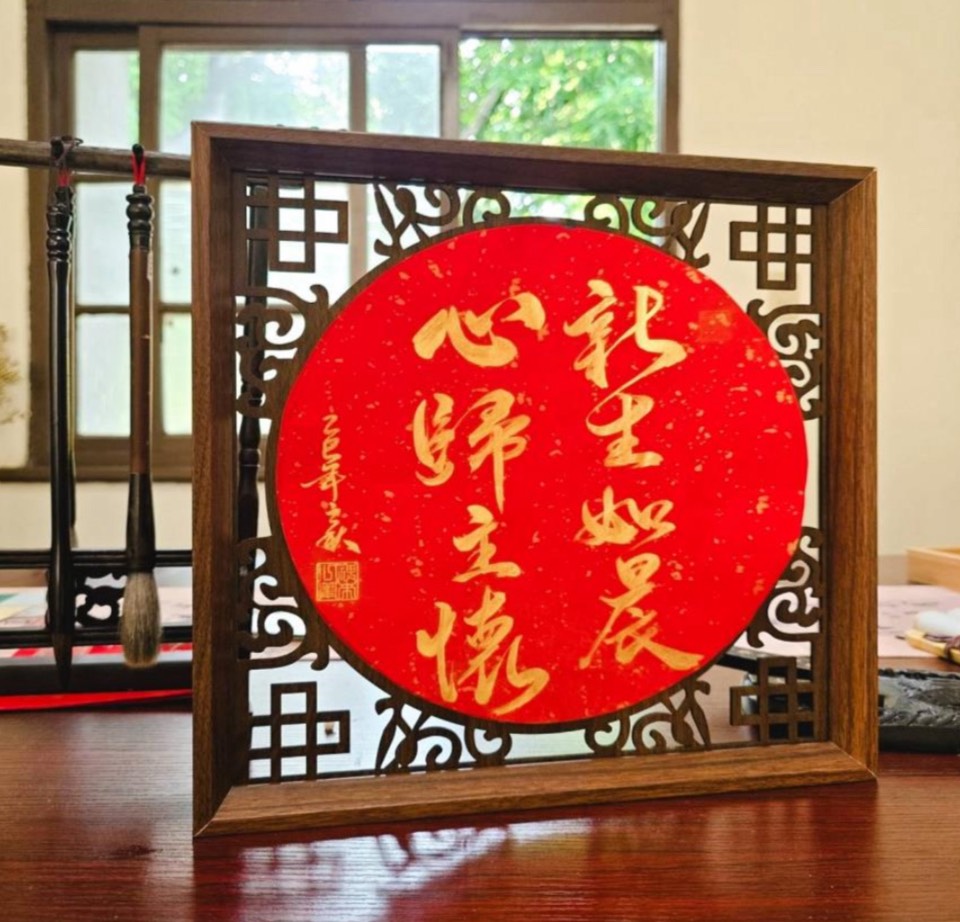 新生如晨
心歸主懷
乙巳年